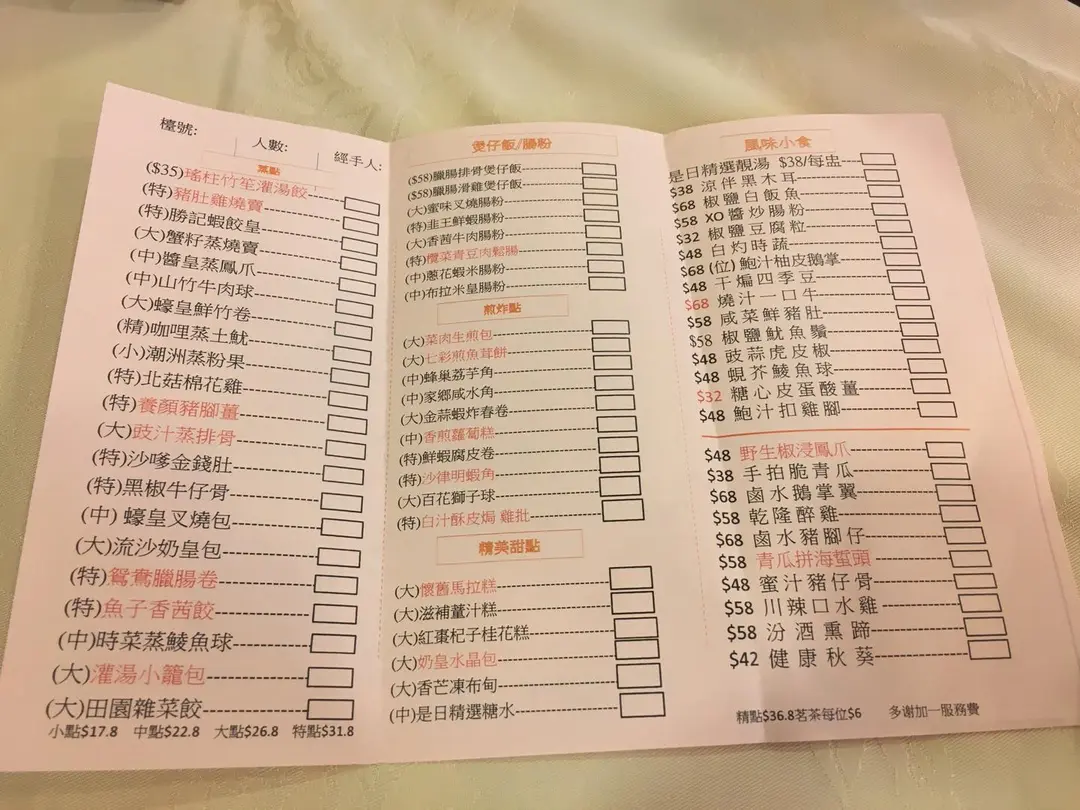 檯號:
人數:
經手人:
蒸點
($35)瑤柱竹笙灌湯餃
(特)豬肚雞燒賣
(特)勝記蝦餃皇
(大)蟹籽蒸燒賣
(中)醬皇蒸鳳爪
(中)山竹牛肉球
(大)蠔皇鮮竹卷
(精)咖哩蒸土魷
(小)潮洲蒸粉果
(特)北菇棉花雞
(特)養顏豬腳薑
(大)豉汁蒸排骨
(特)沙嗲金錢肚
(特)黑椒牛仔骨
(中) 蠔皇叉燒包
(大)流沙奶皇包
(特)鴛鴦臘腸卷
(特)魚子香茜餃
(中)時菜蒸鯪魚球
(大)灌湯小籠包
(大)田園雜菜餃
小點$17.8 中點$22.8 大點$26.8 特點$31.8
煲仔飯/腸粉
($58)臘腸排骨煲仔飯
($58)臘腸滑雞煲仔飯
(大)蜜味叉燒腸粉
(特)韭王鮮蝦腸粉
(大)香茜牛肉腸粉
(特)欖菜青豆肉鬆腸
(中)蔥花蝦米腸粉
(中)布拉米皇腸粉
煎炸點
(大)菜肉生煎包
(大)七彩煎魚茸餅
(中)蜂巢荔芋角
(中)家鄉咸水角
(大)金蒜蝦炸春卷
(中)香煎蘿蔔糕
(特)鮮蝦腐皮卷
(特)沙律明蝦角
(大)百花獅子球
(特)白汁酥皮焗 雞批
精美甜點
(大)懷舊馬拉糕
(大)滋補薑汁糕
(大)紅棗杞子桂花糕
(大)奶皇水晶包
(大)香芒凍布甸
(中)是日精選糖水
風味小食
是日精選靚湯 $38/每盅
$38 涼伴黑木耳
$68 椒鹽白飯魚
$58 XO醬炒腸粉
$32 椒鹽豆腐粒
$48 白灼時蔬
$68 (位)鮑汁柚皮鵝掌
$48 干煸四季豆
$68 燒汁一口牛
$58 咸菜鮮豬肚
$58 椒鹽魷魚鬚
$48 豉蒜虎皮椒
$48 蜆芥鯪魚球
$32 糖心皮蛋酸薑
$48 鮑汁扣雞腳
$48 野生椒浸鳳爪
$38 手拍脆青瓜
$68 鹵水鵝掌翼
$58 乾隆醉雞
$68 鹵水豬腳仔
$58 青瓜拼海蜇頭
$48 蜜汁豬仔骨
$58 川辣口水雞
$58 汾酒熏蹄
$42 健康秋葵
精點$36.8茗茶每位$6 多谢加一服務費